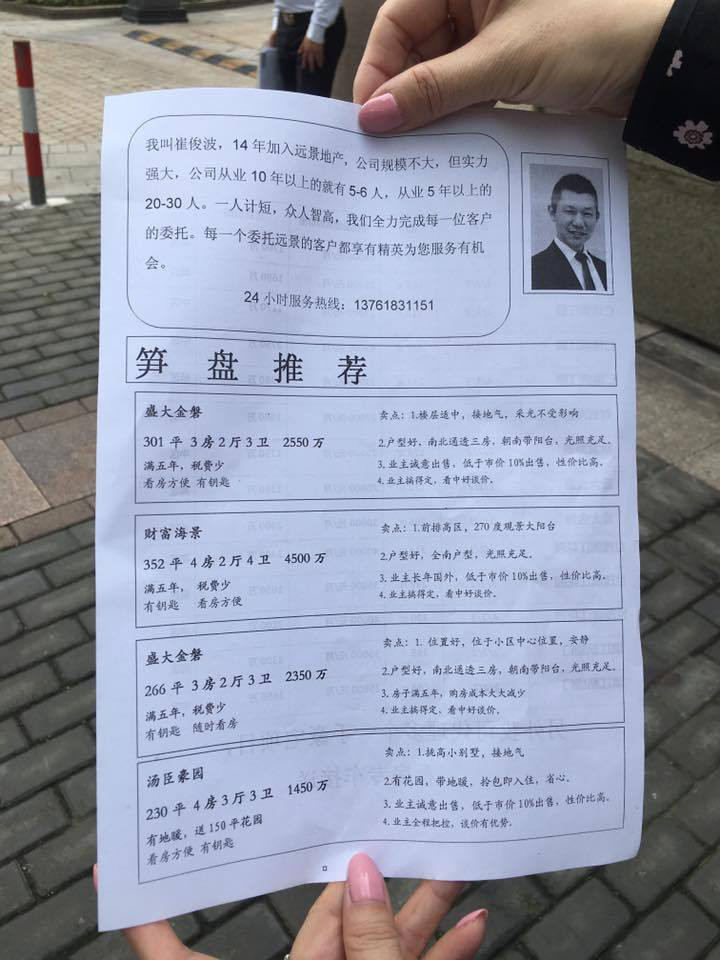 我叫崔俊波，14 年加入远景地产，公司规模不大，但实力
强大，公司从业 10 年以上的就有 5-6 人，从业 5 年以上的
20-30 人。一人计短，众人智高，我们全力完成每一位客户
的委托。每一个委托远景的客户都享有精英为您服务有机
会。
24 小时服务热线：13761831151
笋 盘 推 荐
盛大金磐
301 平 3 房 2 厅 3 卫 2550 万
满五年，税费少
看房方便 有钥匙
卖点：1.楼层适中，接地气，采光不受影响
2.户型好，南北通透三房，朝南带阳台，光照充足。
3.业主诚意出售，低于市价 10%出售，性价比高。
4.业主搞得定，看中好谈价。
财富海景
352 平 4 房 2 厅 4 卫 4500 万
满五年， 税费少
有钥匙 看房方便
卖点：1.前排高区，270 度观景大阳台
2.户型好，全南户型，光照充足。
3.业主长年国外，低于市价 10%出售，性价比高。
4.业主搞得定，看中好谈价。
盛大金磐
266 平 3 房 2 厅 3 卫 2350 万
满五年，税费少
有钥匙 随时看房
卖点：1. 位置好，位于小区中心位置，安静
2.户型好，南北通透三房，朝南带阳台，光照充足。
3.房子满五年，购房成本大大减少
4.业主搞得定，看中好谈价。
汤臣豪园
230 平 4 房 3 厅 3 卫 1450 万
有地暖，送 150 平花园
看房方便 有钥匙
卖点：1.挑高小别墅，接地气
2.有花园，带地暖，拎包即入住，省心。
3.业主诚意出售，低于市价 10%出售，性价比高。
4.业主全程把控，谈价有优势。